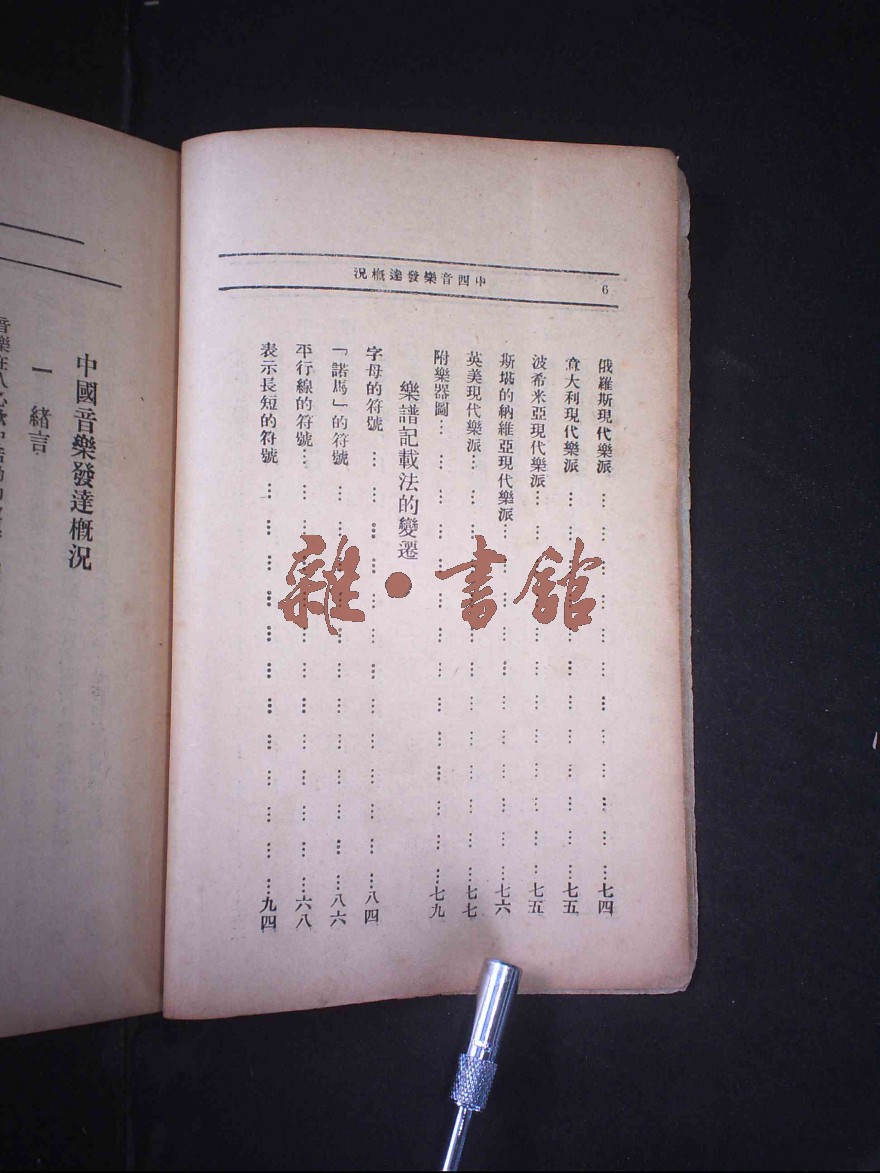 中西音樂發達概況
6
俄羅斯現代樂派⋯⋯⋯⋯⋯⋯⋯⋯⋯⋯七四
意大利現代樂派⋯⋯⋯⋯⋯⋯⋯⋯⋯⋯七五
波希米亞現代樂派⋯⋯⋯⋯⋯⋯⋯⋯⋯⋯七五
斯堪的納維亞現代樂派⋯⋯⋯⋯⋯⋯⋯⋯⋯七六
英美現代樂派⋯⋯⋯⋯⋯⋯⋯⋯⋯⋯七七
附樂器圖⋯⋯⋯⋯⋯⋯⋯⋯⋯⋯七九
樂譜記載法的變遷
字母的符號⋯⋯⋯⋯⋯⋯⋯⋯⋯⋯八四
「諾馬」的符號⋯⋯⋯⋯⋯⋯⋯⋯⋯⋯八六
平行線的符號⋯⋯⋯⋯⋯⋯⋯⋯⋯⋯六八
表示長短的符號⋯⋯⋯⋯⋯⋯⋯⋯⋯⋯九四
中國音樂發達概況
一 緒言
雜·書館